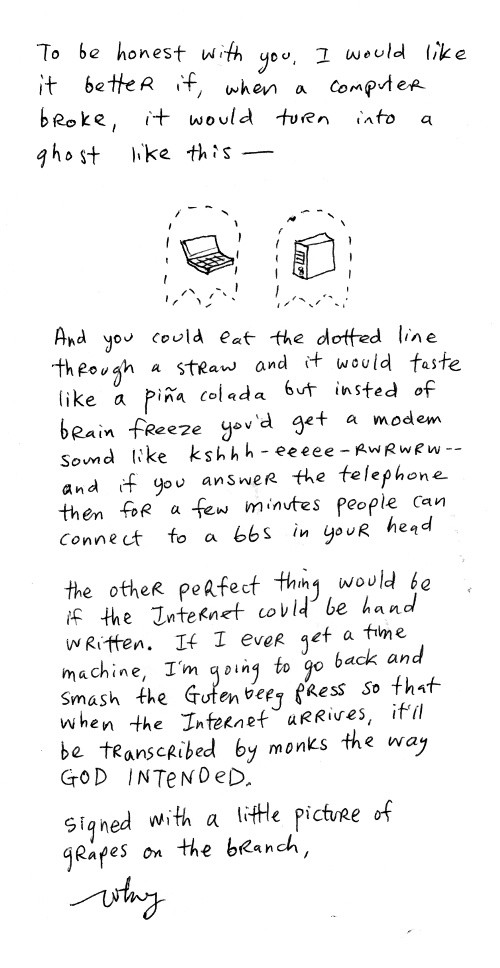 To be honest with you, I would like
it better if, when a computer
broke, it would turn into a
ghost like this —
And you could eat the dotted line
through a straw and it would taste
like a piña colada but insted of
brain freeze you'd get a modem
sound like kshhh-eeeee-RWRWRW--
and if you answer the telephone
then for a few minutes people can
connect to a bbs in your head
the other perfect thing would be
if the Internet could be hand
written. If I ever get a time
machine, I'm going to go back and
smash the Gutenberg press so that
when the Internet arrives, it'll
be transcribed by monks the way
GOD INTENDED.
signed with a little picture of
grapes on the branch,
why